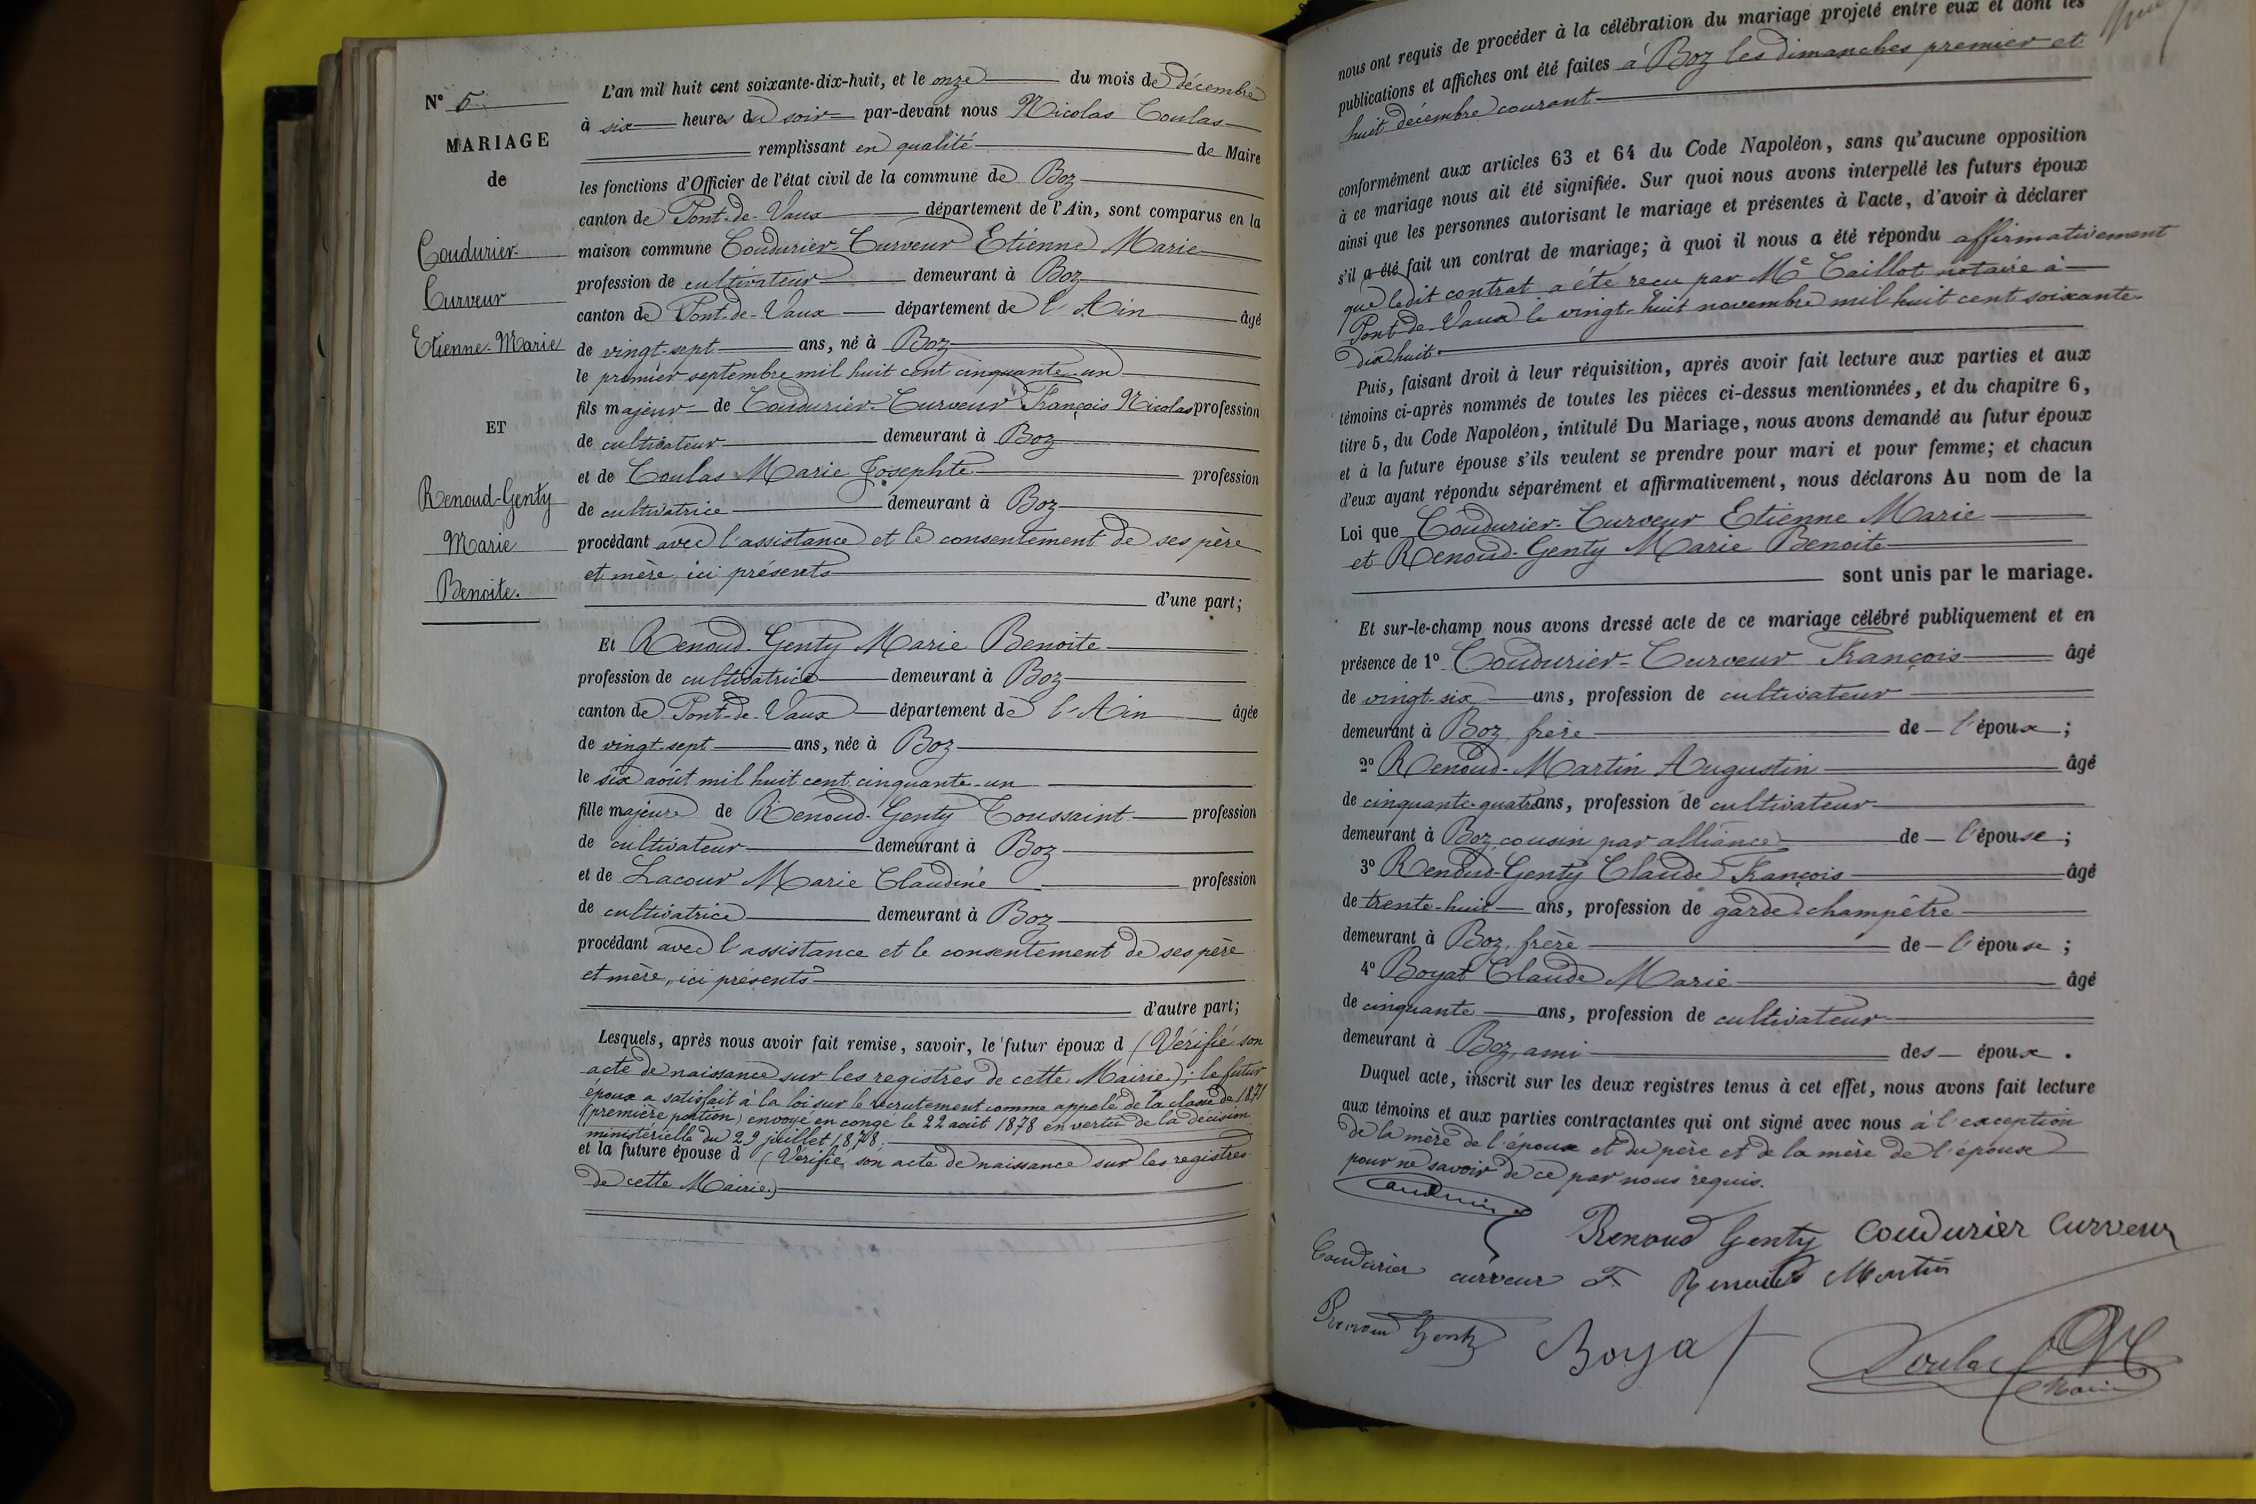 N° 5.
MARIAGE
de
Coudurier-
Curveur
Etienne-Marie
ET
Renoud-Genty
Marie
Benoite.
L'an mil huit cent soixante-dix-huit, et le onze du mois de décembre
à six heures du soir par-devant nous Nicolas Coulas
remplissant en qualité de Maire
les fonctions d'Officier de l'état civil de la commune de Boz
canton de Pont-de-Vaux département de l'Ain, sont comparus en la
maison commune Coudurier-Curveur Etienne Marie
profession de cultivateur demeurant à Boz
canton de Pont-de-Vaux département de l'Ain âgé
de vingt-sept ans, né à Boz
le premier septembre mil huit cent cinquante-un
fils majeur de Coudurier-Curveur François Nicolas profession
de cultivateur demeurant à Boz
et de Coulas Marie Josephte profession
de cultivatrice demeurant à Boz
procédant avec l'assistance et le consentement de ses père
et mère, ici présents
d'une part;
Et Renoud-Genty Marie Benoite
profession de cultivatrice demeurant à Boz
canton de Pont-de-Vaux département de l'Ain âgée
de vingt-sept ans, née à Boz
le six août mil huit cent cinquante-un
fille majeure de Renoud-Genty Toussaint profession
de cultivateur demeurant à Boz
et de Lacour Marie Claudine profession
de cultivatrice demeurant à Boz
procédant avec l'assistance et le consentement de ses père
et mère, ici présents
d'autre part;
Lesquels, après nous avoir fait remise, savoir, le futur époux d (Vérifié son
acte de naissance sur les registres de cette Mairie); le futur
époux a satisfait à la loi sur le recrutement comme appelé de la classe de 1871
(première portion) envoyé en congé le 22 août 1878 en vertu de la décision
ministérielle du 29 juillet 1878.
et la future épouse d (Vérifié son acte de naissance sur les registres
de cette Mairie)
nous ont requis de procéder à la célébration du mariage projeté entre eux et dont les
publications et affiches ont été faites à Boz les dimanches premier et
huit décembre courant
conformément aux articles 63 et 64 du Code Napoléon, sans qu'aucune opposition
à ce mariage nous ait été signifiée. Sur quoi nous avons interpellé les futurs époux
ainsi que les personnes autorisant le mariage et présentes à l'acte, d'avoir à déclarer
s'il a été fait un contrat de mariage; à quoi il nous a été répondu affirmativement
que ledit contrat a été reçu par Me Taillot notaire à
Pont-de-Vaux le vingt-huit novembre mil huit cent soixante-
dix-huit.
Puis, faisant droit à leur réquisition, après avoir fait lecture aux parties et aux
témoins ci-après nommés de toutes les pièces ci-dessus mentionnées, et du chapitre 6,
titre 5, du Code Napoléon, intitulé Du Mariage, nous avons demandé au futur époux
et à la future épouse s'ils veulent se prendre pour mari et pour femme; et chacun
d'eux ayant répondu séparément et affirmativement, nous déclarons Au nom de la
Loi que Coudurier-Curveur Etienne Marie
et Renoud-Genty Marie Benoite
sont unis par le mariage.
Et sur-le-champ nous avons drcssé acte de ce mariage célébré publiquement et en
présence de 1° Coudurier-Curveur François âgé
de vingt-six ans, profession de cultivateur
demeurant à Boz, frère de l'époux;
2° Renoud-Martin Augustin âgé
de cinquante-quatre ans, profession de cultivateur
demeurant à Boz, cousin par alliance de l'épouse;
3° Renoud-Genty Claude François âgé
de trente-huit ans, profession de garde-champêtre
demeurant à Boz, frère de l'épouse;
4° Boyat Claude Marie âgé
de cinquante ans, profession de cultivateur
demeurant à Boz, ami des époux.
Duquel acte, inscrit sur les deux registres tenus à cet effet, nous avons fait lecture
aux témoins et aux parties contractantes qui ont signé avec nous à l'exception
de la mère de l'époux et du père et de la mère de l'épouse
pour ne savoir de ce par nous requis.
Renoud Genty Coudurier Curveur
Coudurier curveur F. Renoud Martin
Renoud Genty Boyat Coulas
Maire